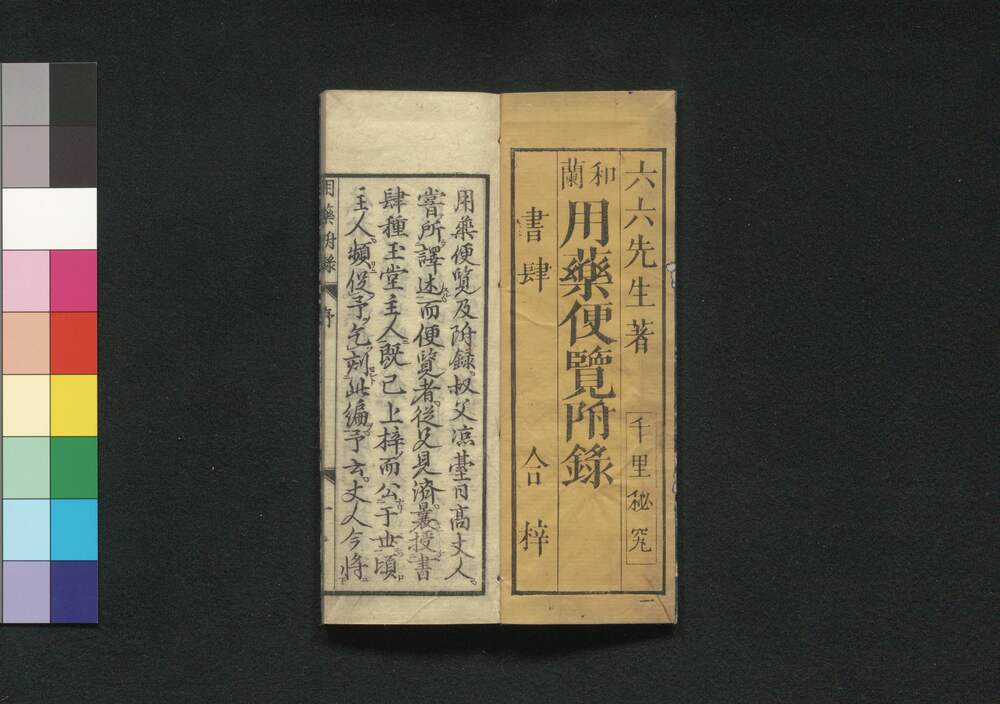 六六先生著
千里秘究
和蘭
用藥便覽附錄
書肆 合梓
一
用藥便覽及附録。叔父凉臺日高丈人。
嘗所譯述而便覽者。從父兄濟曩授書
肆種玉堂主人既已上梓而公于世頃
主人頻促予乞刻此編予云。丈人今將
用藥附錄 序 一